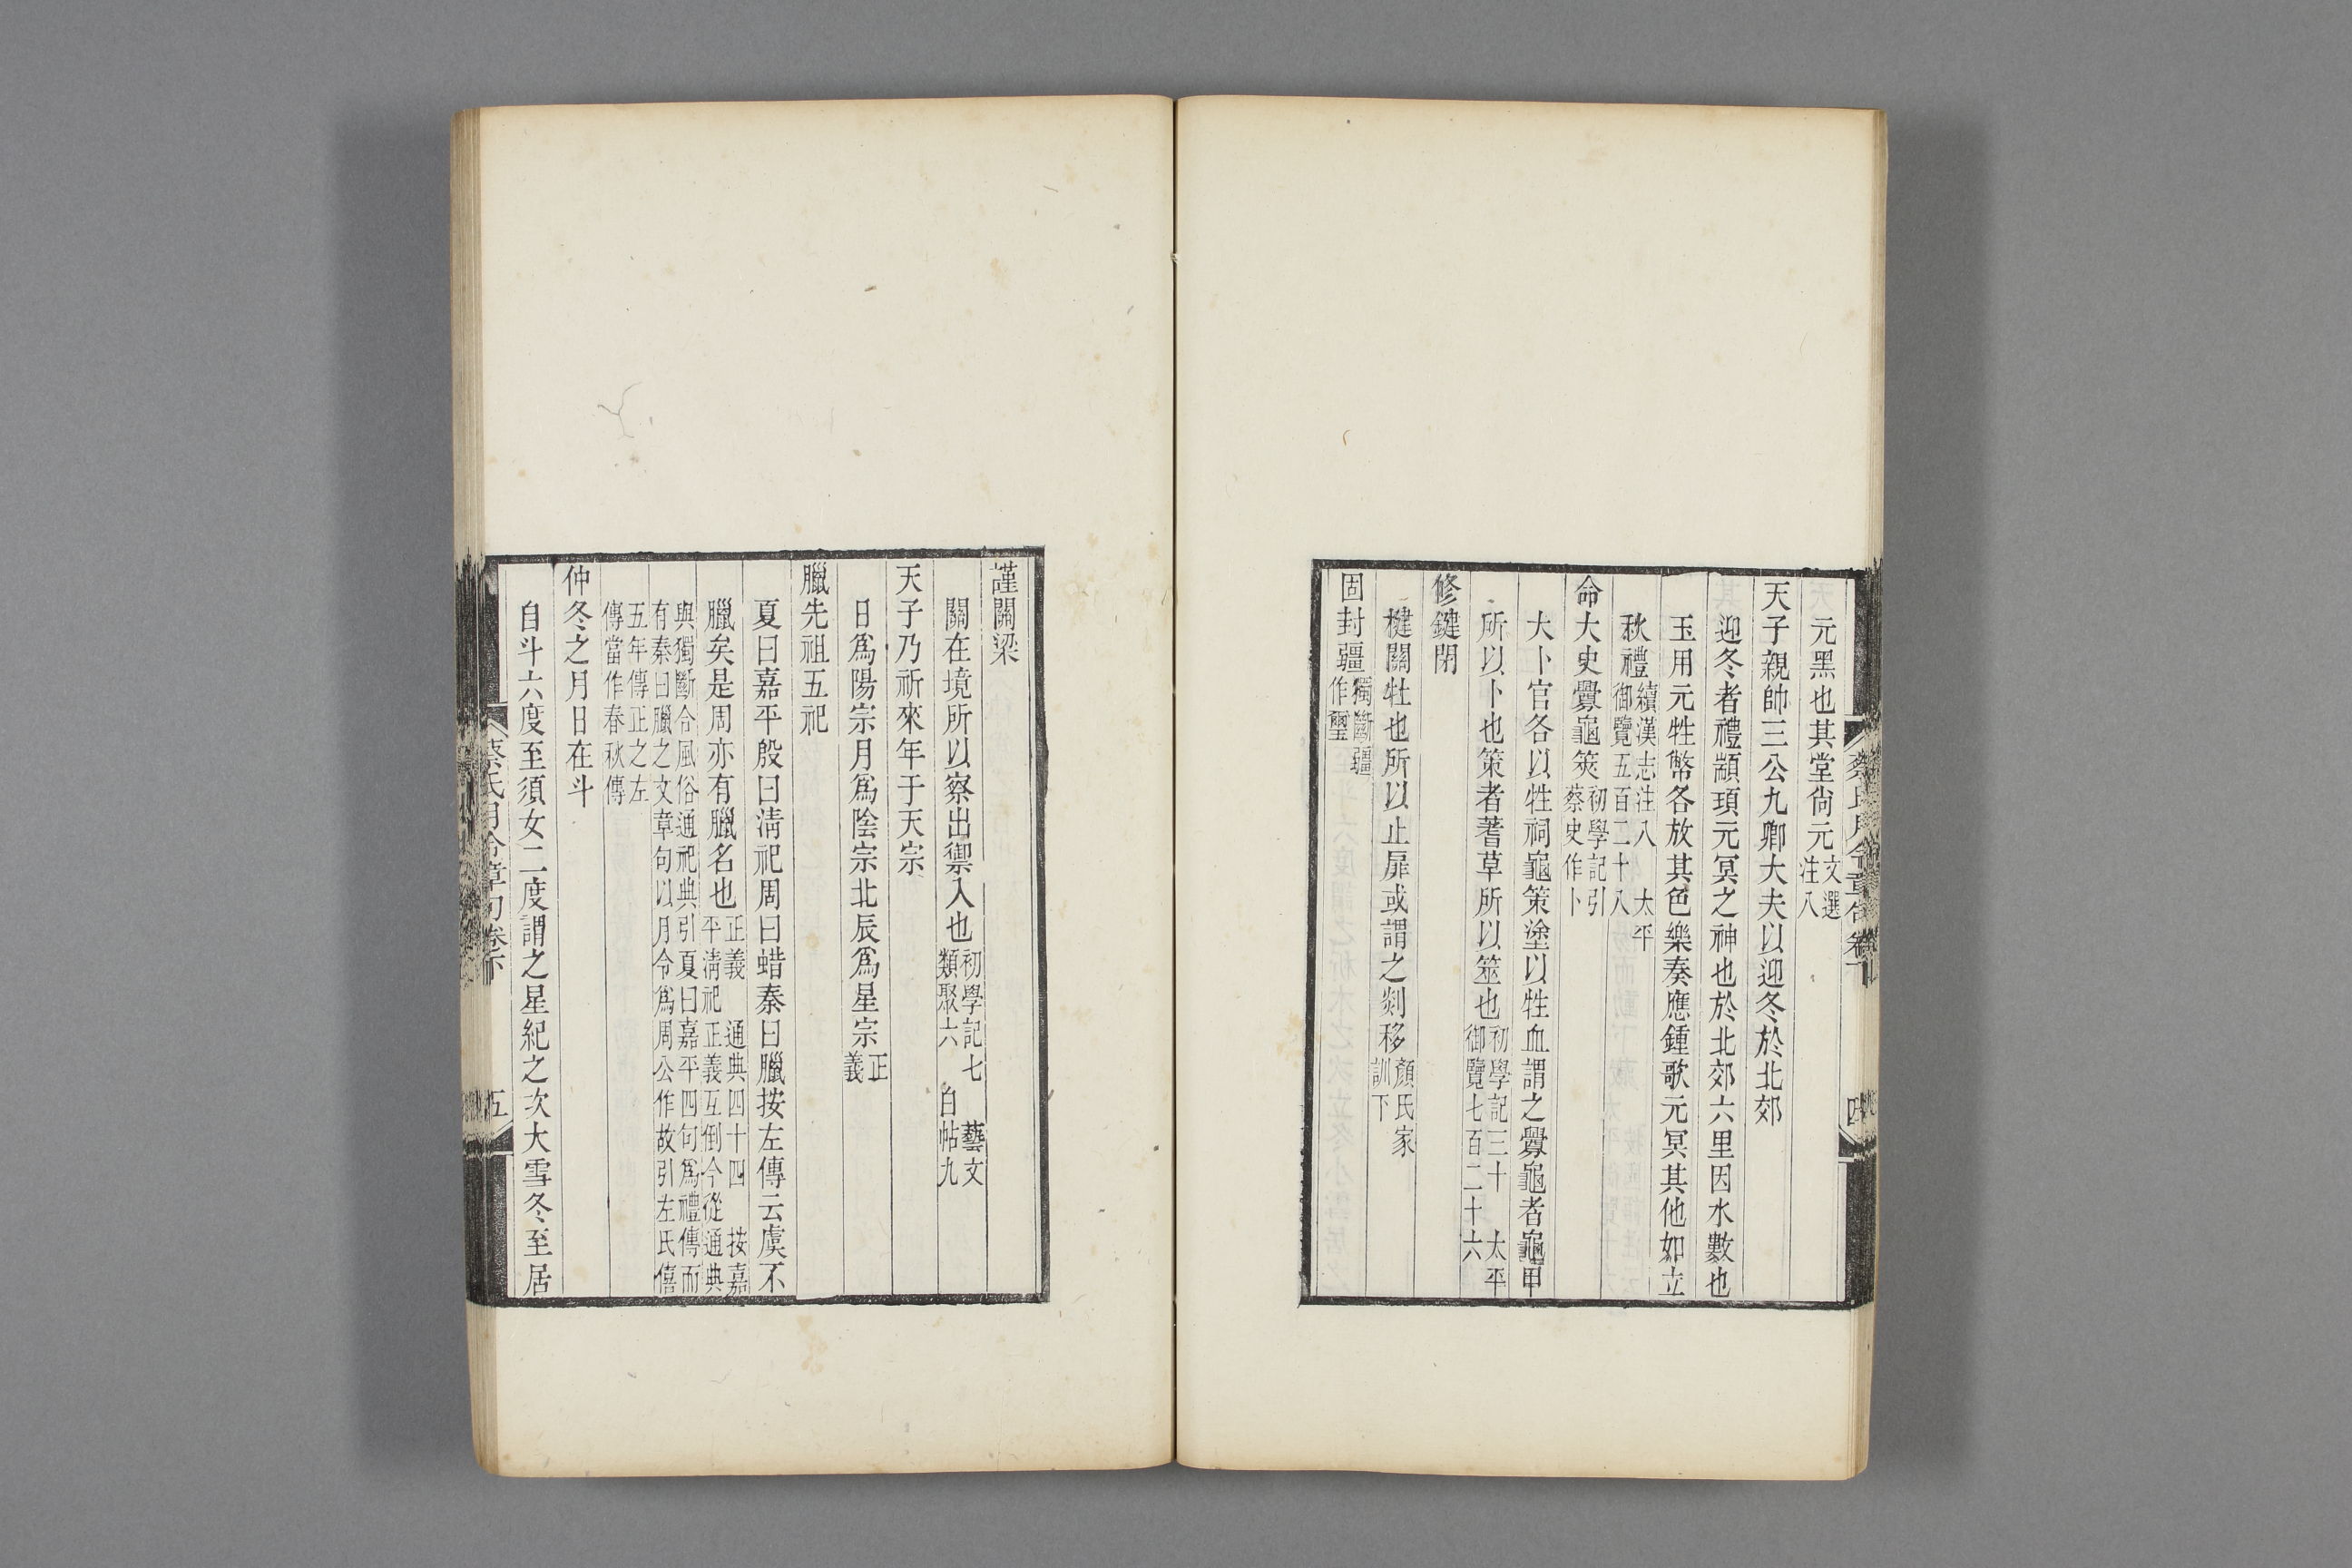 元黑也其堂尙元文選注八
天子親帥三公九卿大夫以迎冬於北郊
迎冬者禮顓頊元冥之神也於北郊六里因水數也
玉用元牲幣各放其色樂奏應鍾歌元冥其他如立
秋禮續漢志注八 太平御覽五百二十八
命大史釁龜筴初學記引蔡史作卜
大卜官各以牲祠龜策塗以牲血謂之釁龜者龜甲
所以卜也策者蓍草所以筮也初學記三十 太平御覽七百二十六
修鍵閉
楗關牡也所以止扉或謂之剡移顏氏家訓下
固封疆獨斷疆作璽
蔡氏月令章句卷下 四
謹關梁
關在境所以察出禦入也初學記七 藝文類聚六 白帖九
天子乃祈來年于天宗
日爲陽宗月爲陰宗北辰爲星宗正義
臘先祖五祀
夏曰嘉平殷曰淸祀周曰蜡秦曰臘按左傳云虞不
臘矣是周亦有臘名也正義 通典四十四 按嘉平淸祀正義互倒今從通典
與獨斷合風俗通祀典引夏曰嘉平四句爲禮傳而有秦曰臘之文章句以月令爲周公作故引左氏僖
五年傳正之左傳當作春秋傳
仲冬之月日在斗
自斗六度至須女二度謂之星紀之次大雪冬至居
蔡氏月令章句卷下 五